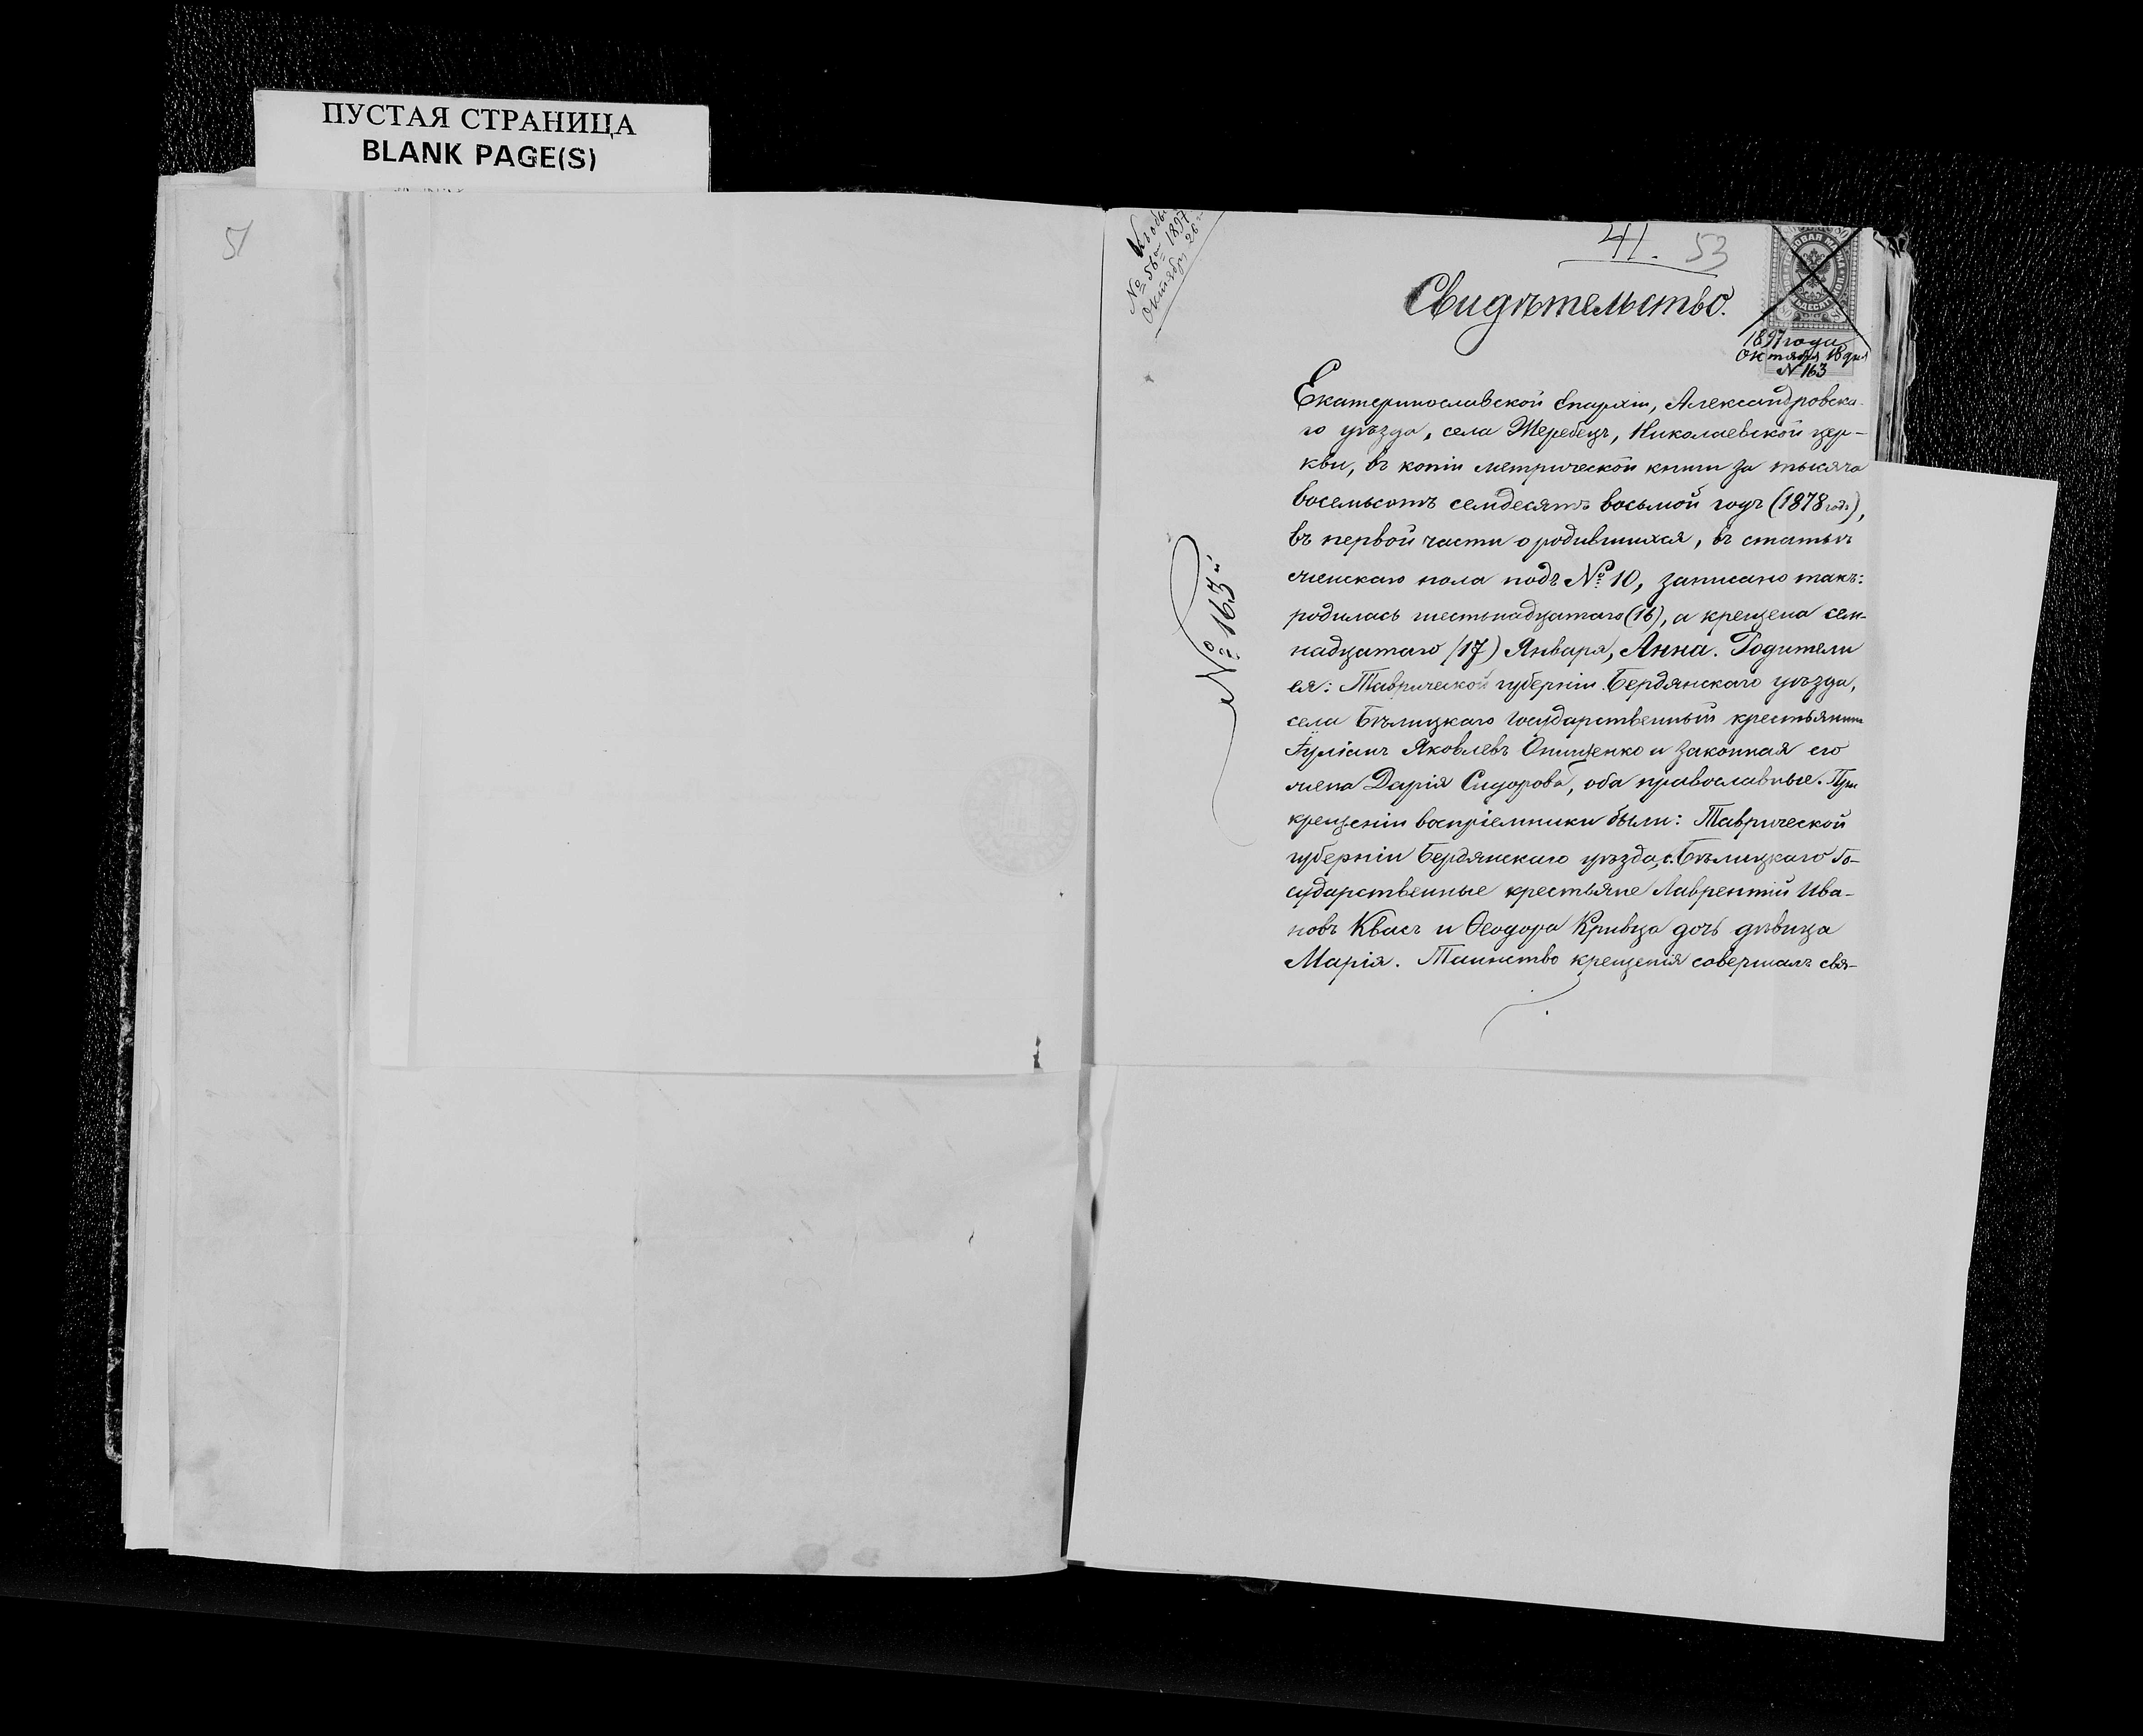 ПУСТАЯ СТРАНИЦА
BLANK PAGE(S)
51
№ 56 1897
Октября 26
41. 53
Свидѣтельство.
1897 года
Октября 18 дня
N 163
№ 163й
Екатеринославской Епархіи, Александровска-
го уѣзда, села Жеребецъ, Николаевской цер-
кви, въ копіи метрической книги за тысяча
восемьсотъ семдесятъ восьмой годъ (1878 годъ),
въ первой части о родившихся, въ статьѣ
женскаго пола подъ № 10, записано такъ:
родилась шестьнадцатаго (16), а крещена сем-
надцатаго (17) Января, Анна. Родители
ея: Таврической губерніи Бердянскаго уѣзда,
села Бѣлицкаго Государственный крестьянинъ
Іуліанъ Яковлевъ Онищенко и законная его
жена Дарія Сидорова, оба православные. При
крещеніи воспріемники были: Таврической
губерніи Бердянскаго уѣзда, с. Бѣлицкаго Го-
сударственные крестьяне Лаврентій Ива-
новъ Квасъ и Ѳеодора Кривца дочь дѣвица
Марія. Таинство крещенія совершалъ свя-